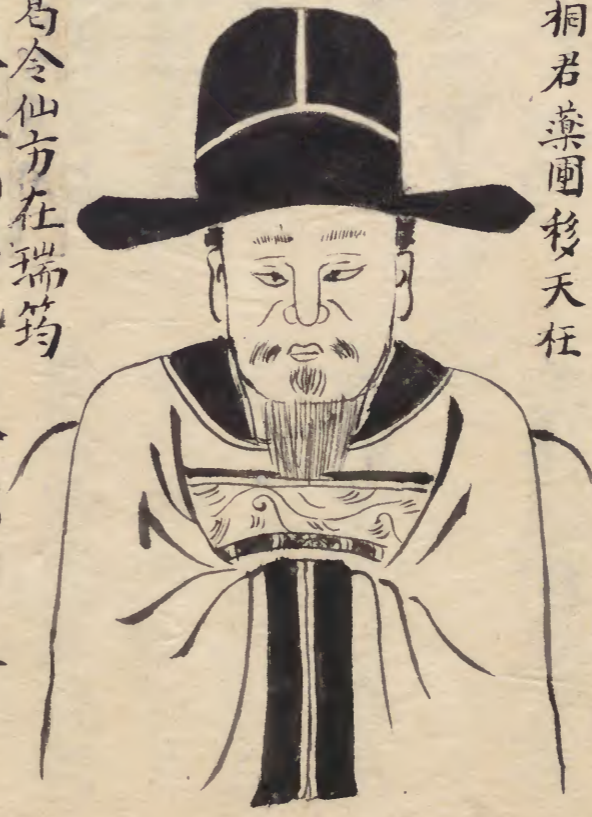 桐君薬圃移天枉
葛令仙方在瑞筠